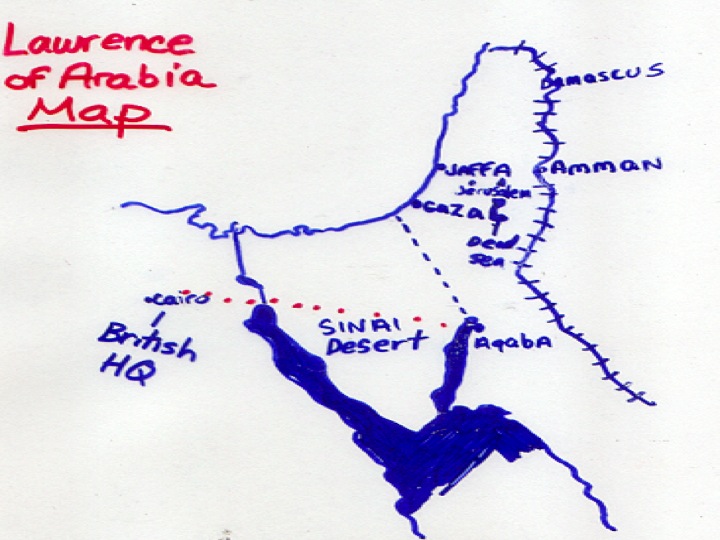 Lawrence
of Arabia
Map
Damascus
JAFFA
Amman
Jerusalem
GAZA
Dead
Sea
Cairo
British
HQ
SINAI
Desert
AqabA